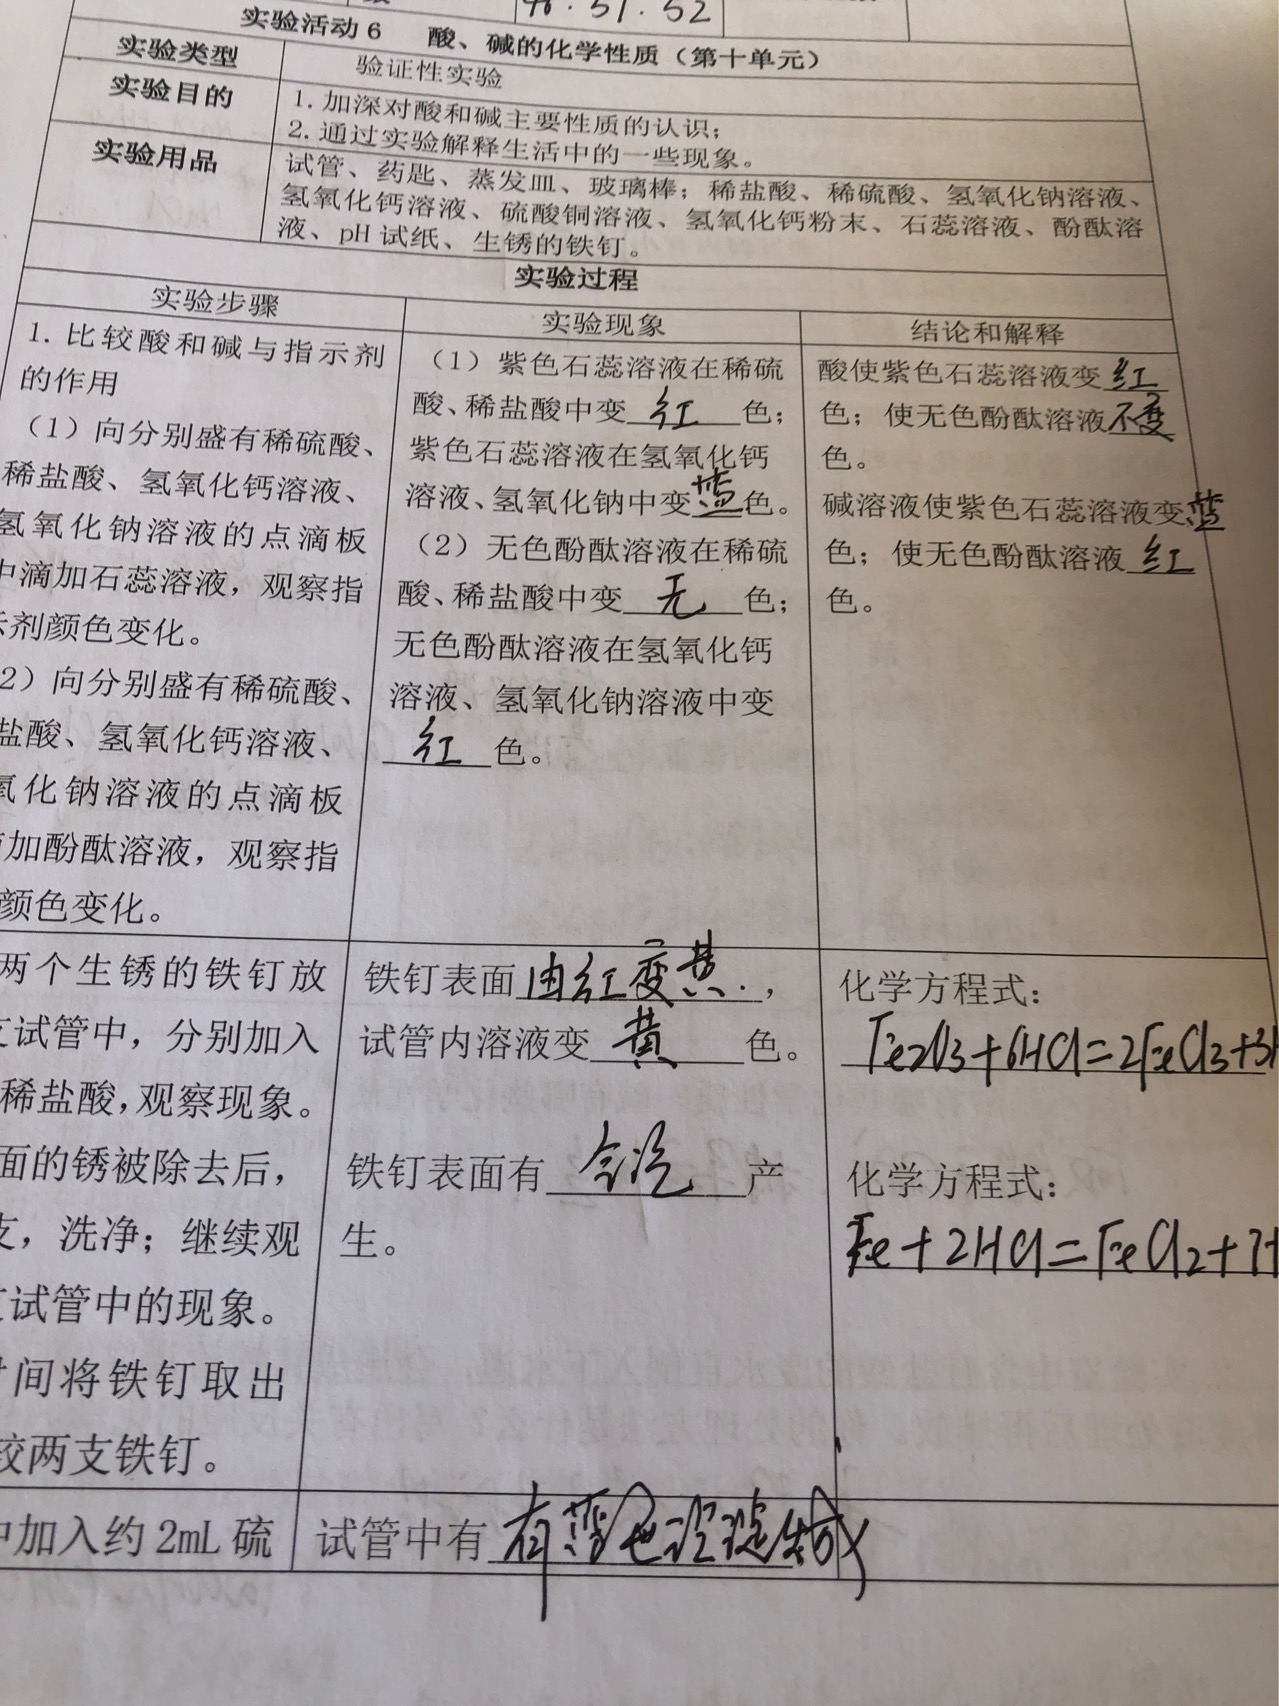 46.51.52
实验活动6 酸、碱的化学性质（第十单元）
实验类型 验证性实验
实验目的 1.加深对酸和碱主要性质的认识；
2.通过实验解释生活中的一些现象。
实验用品 试管、药匙、蒸发皿、玻璃棒；稀盐酸、稀硫酸、氢氧化钠溶液、
氢氧化钙溶液、硫酸铜溶液、氢氧化钙粉末、石蕊溶液、酚酞溶
液、pH试纸、生锈的铁钉。
实验过程
实验步骤 实验现象 结论和解释
1.比较酸和碱与指示剂
的作用
（1）向分别盛有稀硫酸、
稀盐酸、氢氧化钙溶液、
氢氧化钠溶液的点滴板
中滴加石蕊溶液，观察指
示剂颜色变化。
2）向分别盛有稀硫酸、
盐酸、氢氧化钙溶液、
氧化钠溶液的点滴板
加酚酞溶液，观察指
颜色变化。
（1）紫色石蕊溶液在稀硫
酸、稀盐酸中变红色；
紫色石蕊溶液在氢氧化钙
溶液、氢氧化钠中变蓝色。
（2）无色酚酞溶液在稀硫
酸、稀盐酸中变无色；
无色酚酞溶液在氢氧化钙
溶液、氢氧化钠溶液中变
红色。
酸使紫色石蕊溶液变红
色；使无色酚酞溶液不变
色。
碱溶液使紫色石蕊溶液变蓝
色；使无色酚酞溶液红
色。
两个生锈的铁钉放
试管中，分别加入
稀盐酸，观察现象。
面的锈被除去后，
支，洗净；继续观
试管中的现象。
时间将铁钉取出
较两支铁钉。
铁钉表面由红变黄，
试管内溶液变黄色。
铁钉表面有气泡产
生。
化学方程式：
Fe2O3+6HCl=2FeCl3+3H
化学方程式：
Fe+2HCl=FeCl2+H
中加入约2mL硫
试管中有有蓝色沉淀生成